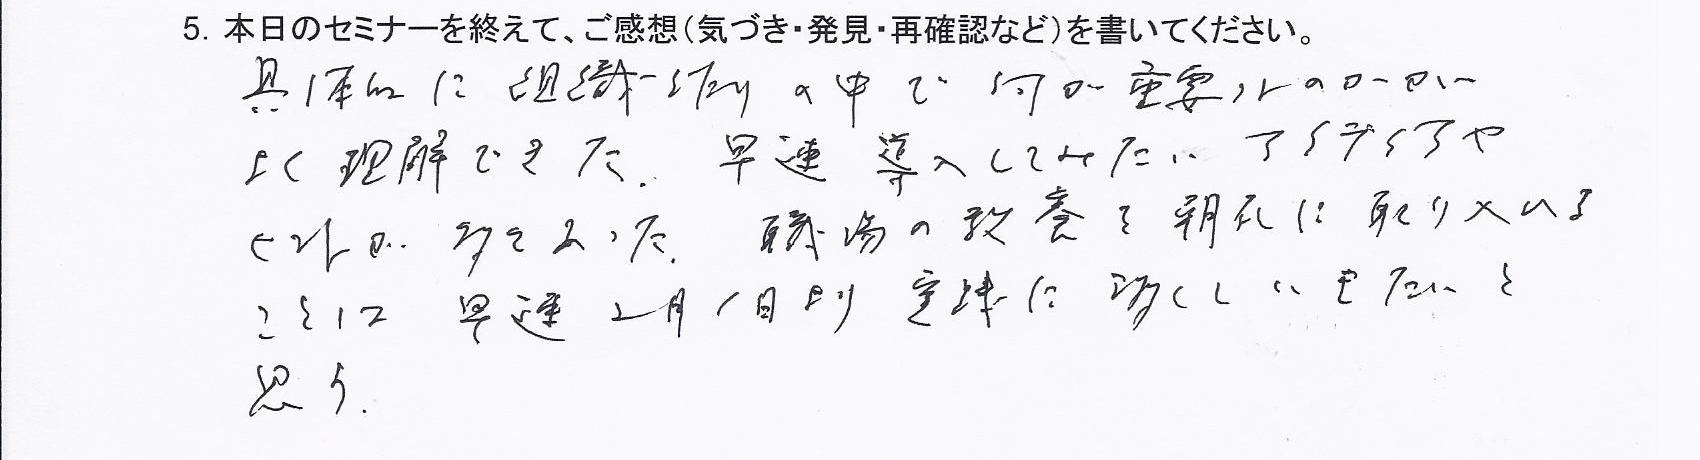 5. 本日のセミナーを終えて、ご感想(気づき・発見・再確認など)を書いてください。
具体的に組織作りの中で何が重要なのかが
よく理解できた. 早速導入してみたいアイディアや
ヒントが多くあった. 職場の教養を朝礼に取り入れる
ことは早速2月1日より実践に移していきたいと
思う.